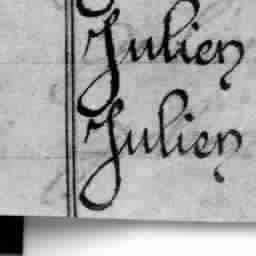 Julien
Julien